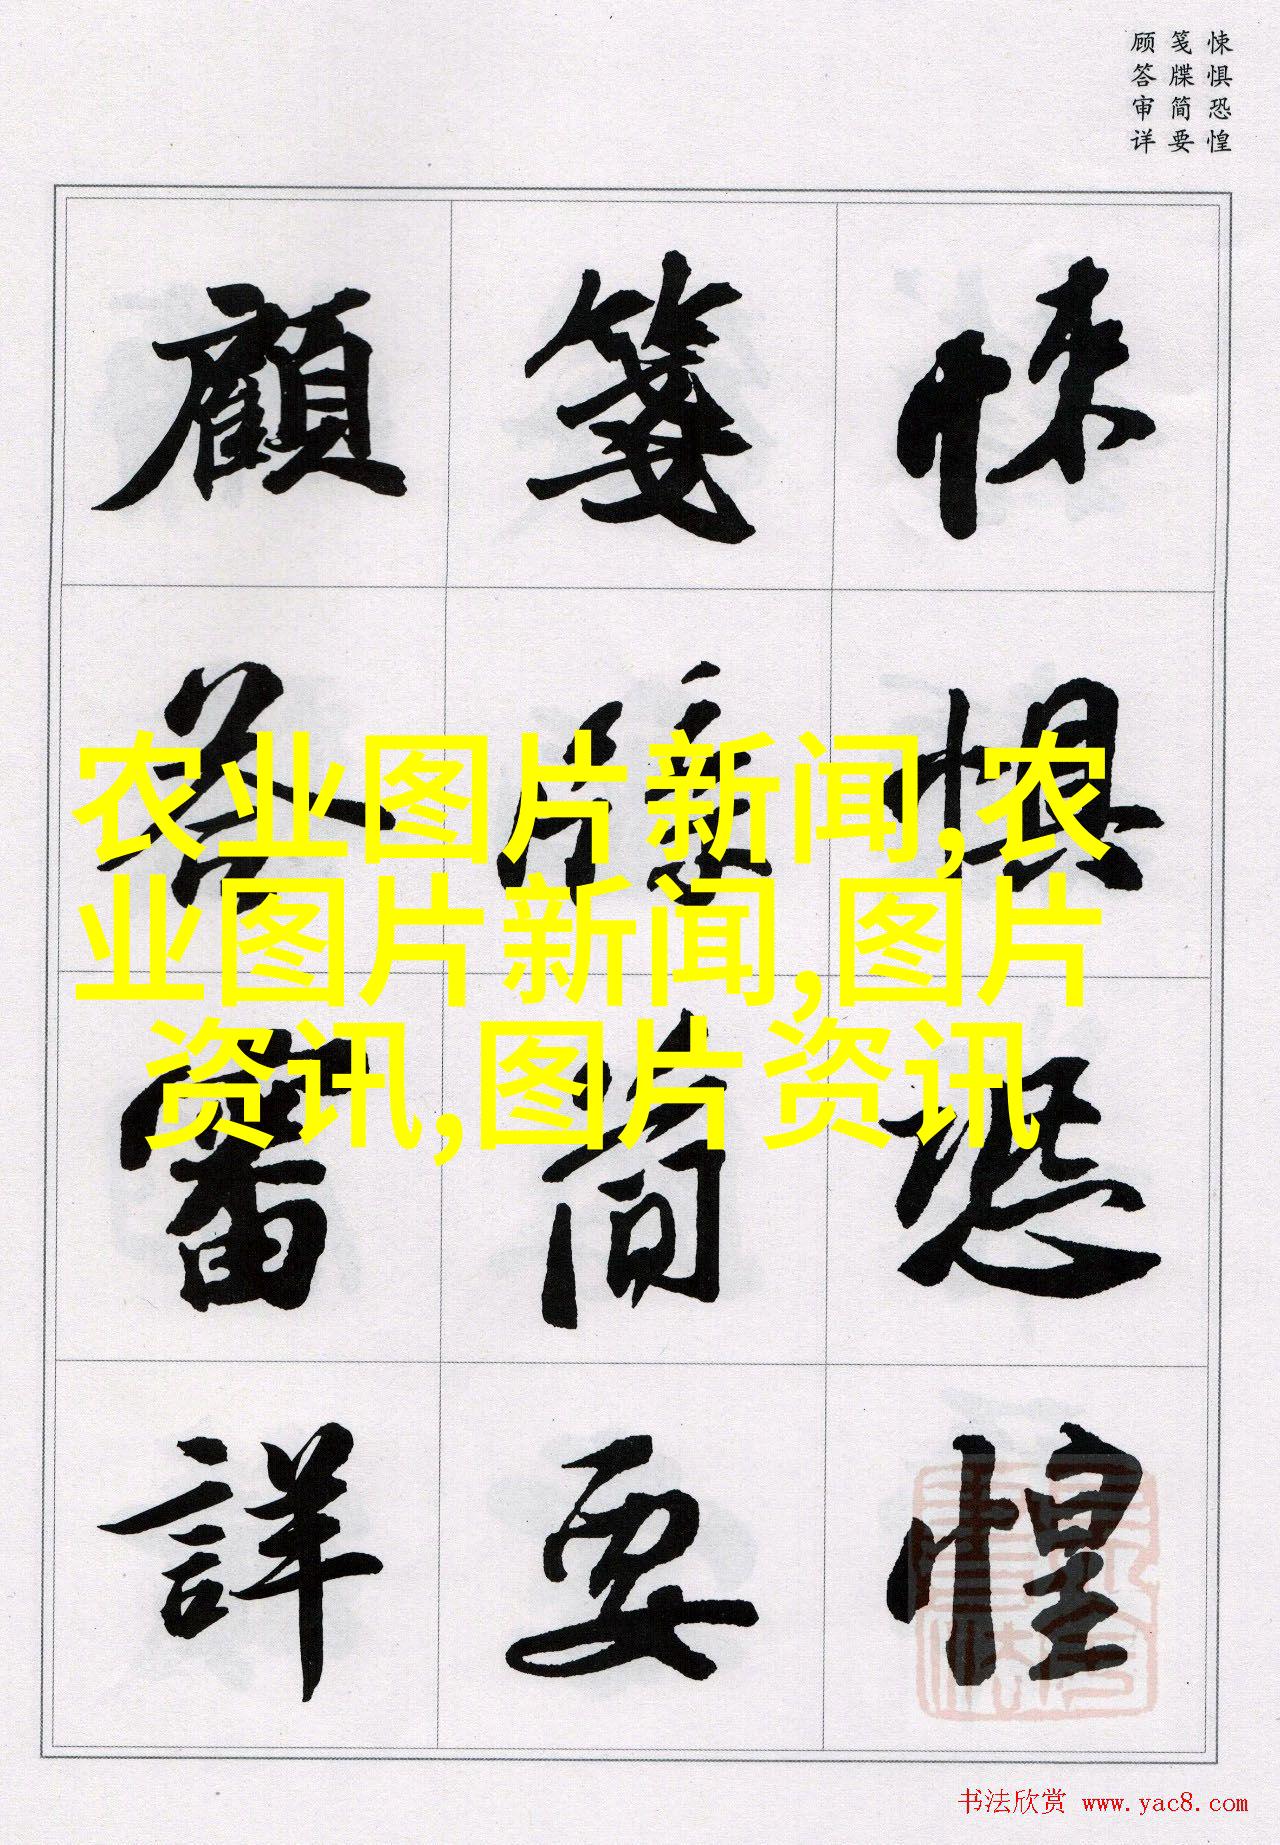 悚惧恐惶
笺牒简要
顾答审详
悚懼恐惶
箋牒簡要
顧答審詳
农业图片新闻,农
业图片新闻,图片
资讯,图片资讯
书法欣赏 www.yac8.com